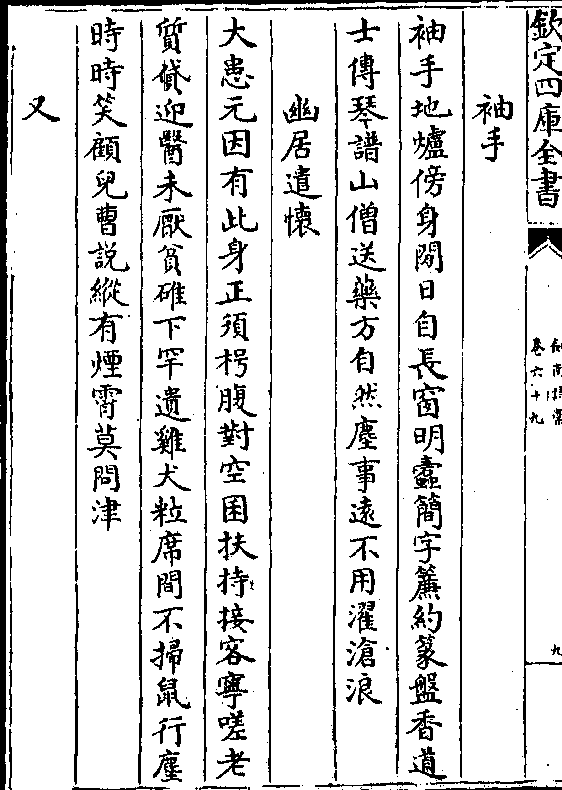 欽定四庫全書
卷六十九
九
袖手
袖手地爐傍身閒日自長窗明蠹簡字簾約篆盤香道
士傳琴譜山僧送藥方自然塵事遠不用濯滄浪
幽居遣懷
大患元因有此身正須枵腹對空囷扶持接客寧嗟老
質貸迎醫未厭貧碓下罕遺雞犬粒席間不掃鼠行塵
時時笑顧兒曹説縱有煙霄莫問津
又